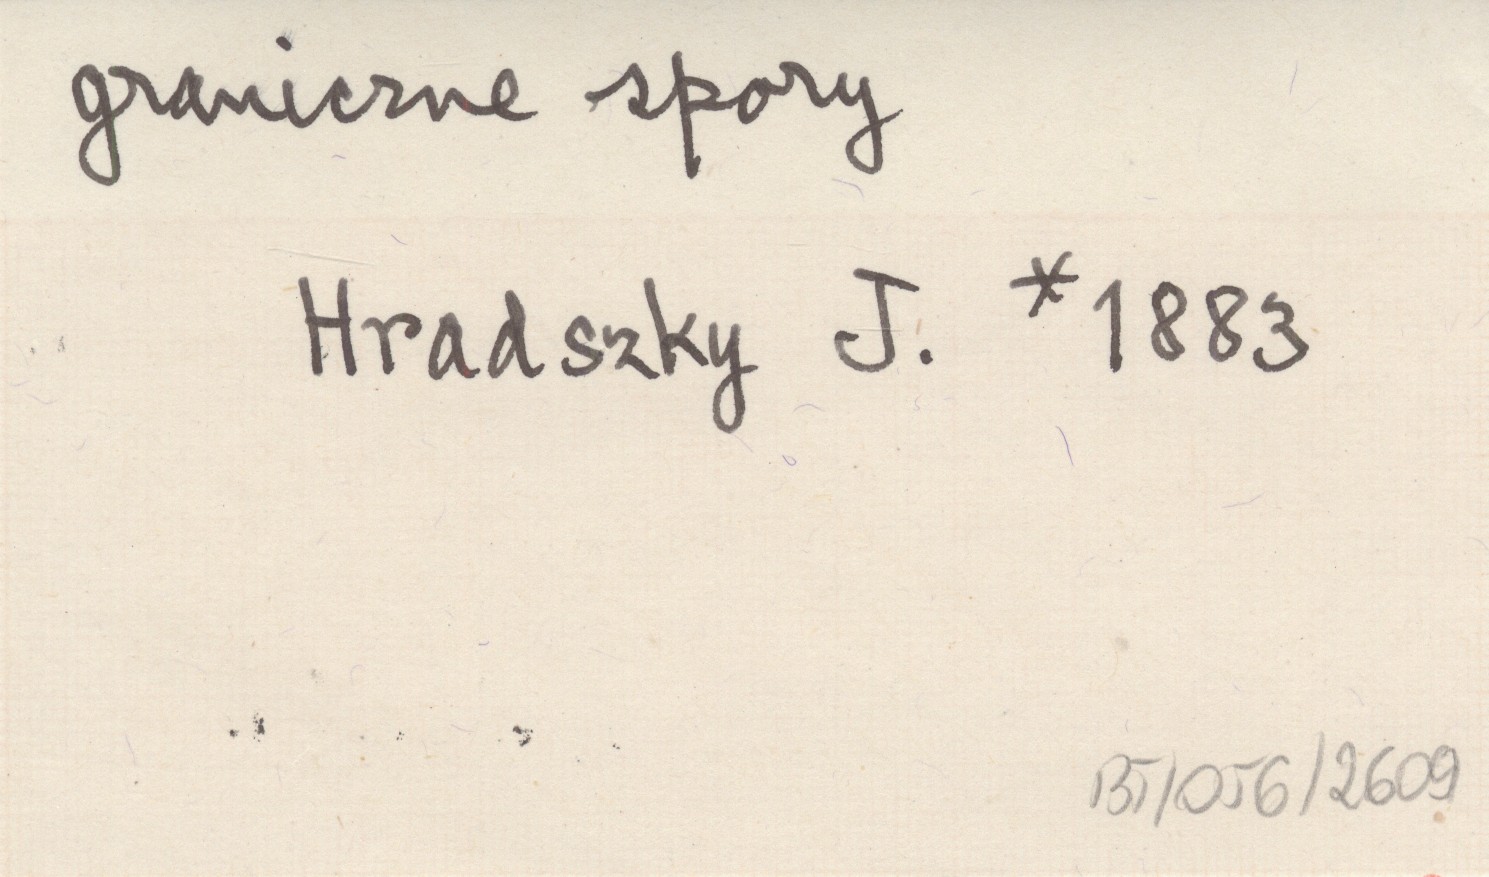 graniczne spory
Hradszky J. *1883
BT/056/2609